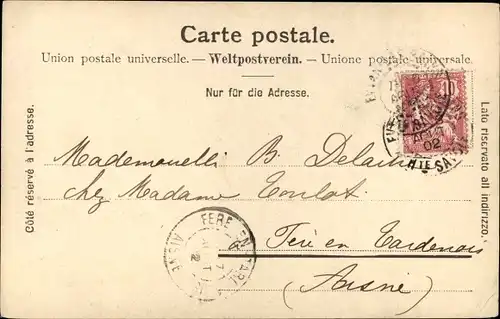 Carte postale.
Union postale universelle. — Weltpostverein. — Unione postale universale
Nur für die Adresse.
Côté réservé à l'adresse.
Lato riservato all indirizzo.
10
02
Hte SA
Mademoiselle B. Delain
chez Madame Toulot
à Fère en Tardenois
(Aisne)
FERE EN TARD
AISNE